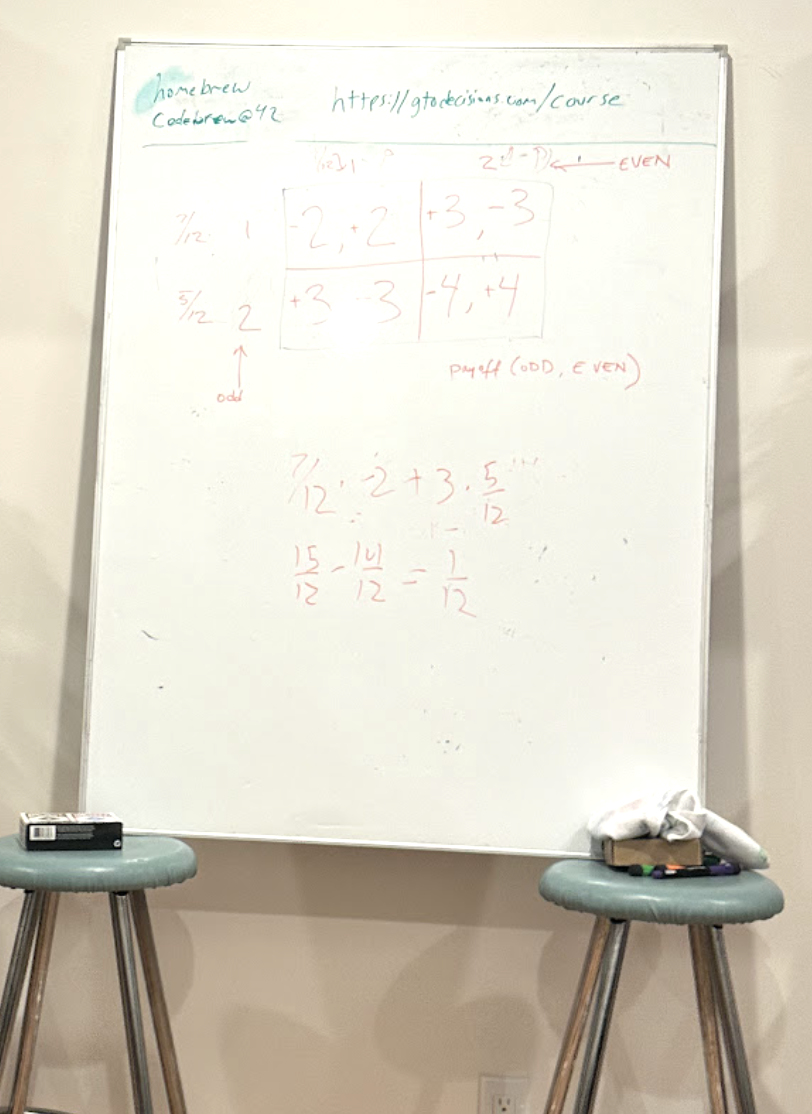 homebrew
codebrew@42
https://gtodecisions.com/course
EVEN
7/12 1 -2, +2 +3, -3
5/12 2 +3 -3 -4, +4
odd
payoff (ODD, EVEN)
7/12 · -2 + 3 · 5/12
15/12 - 14/12 = 1/12